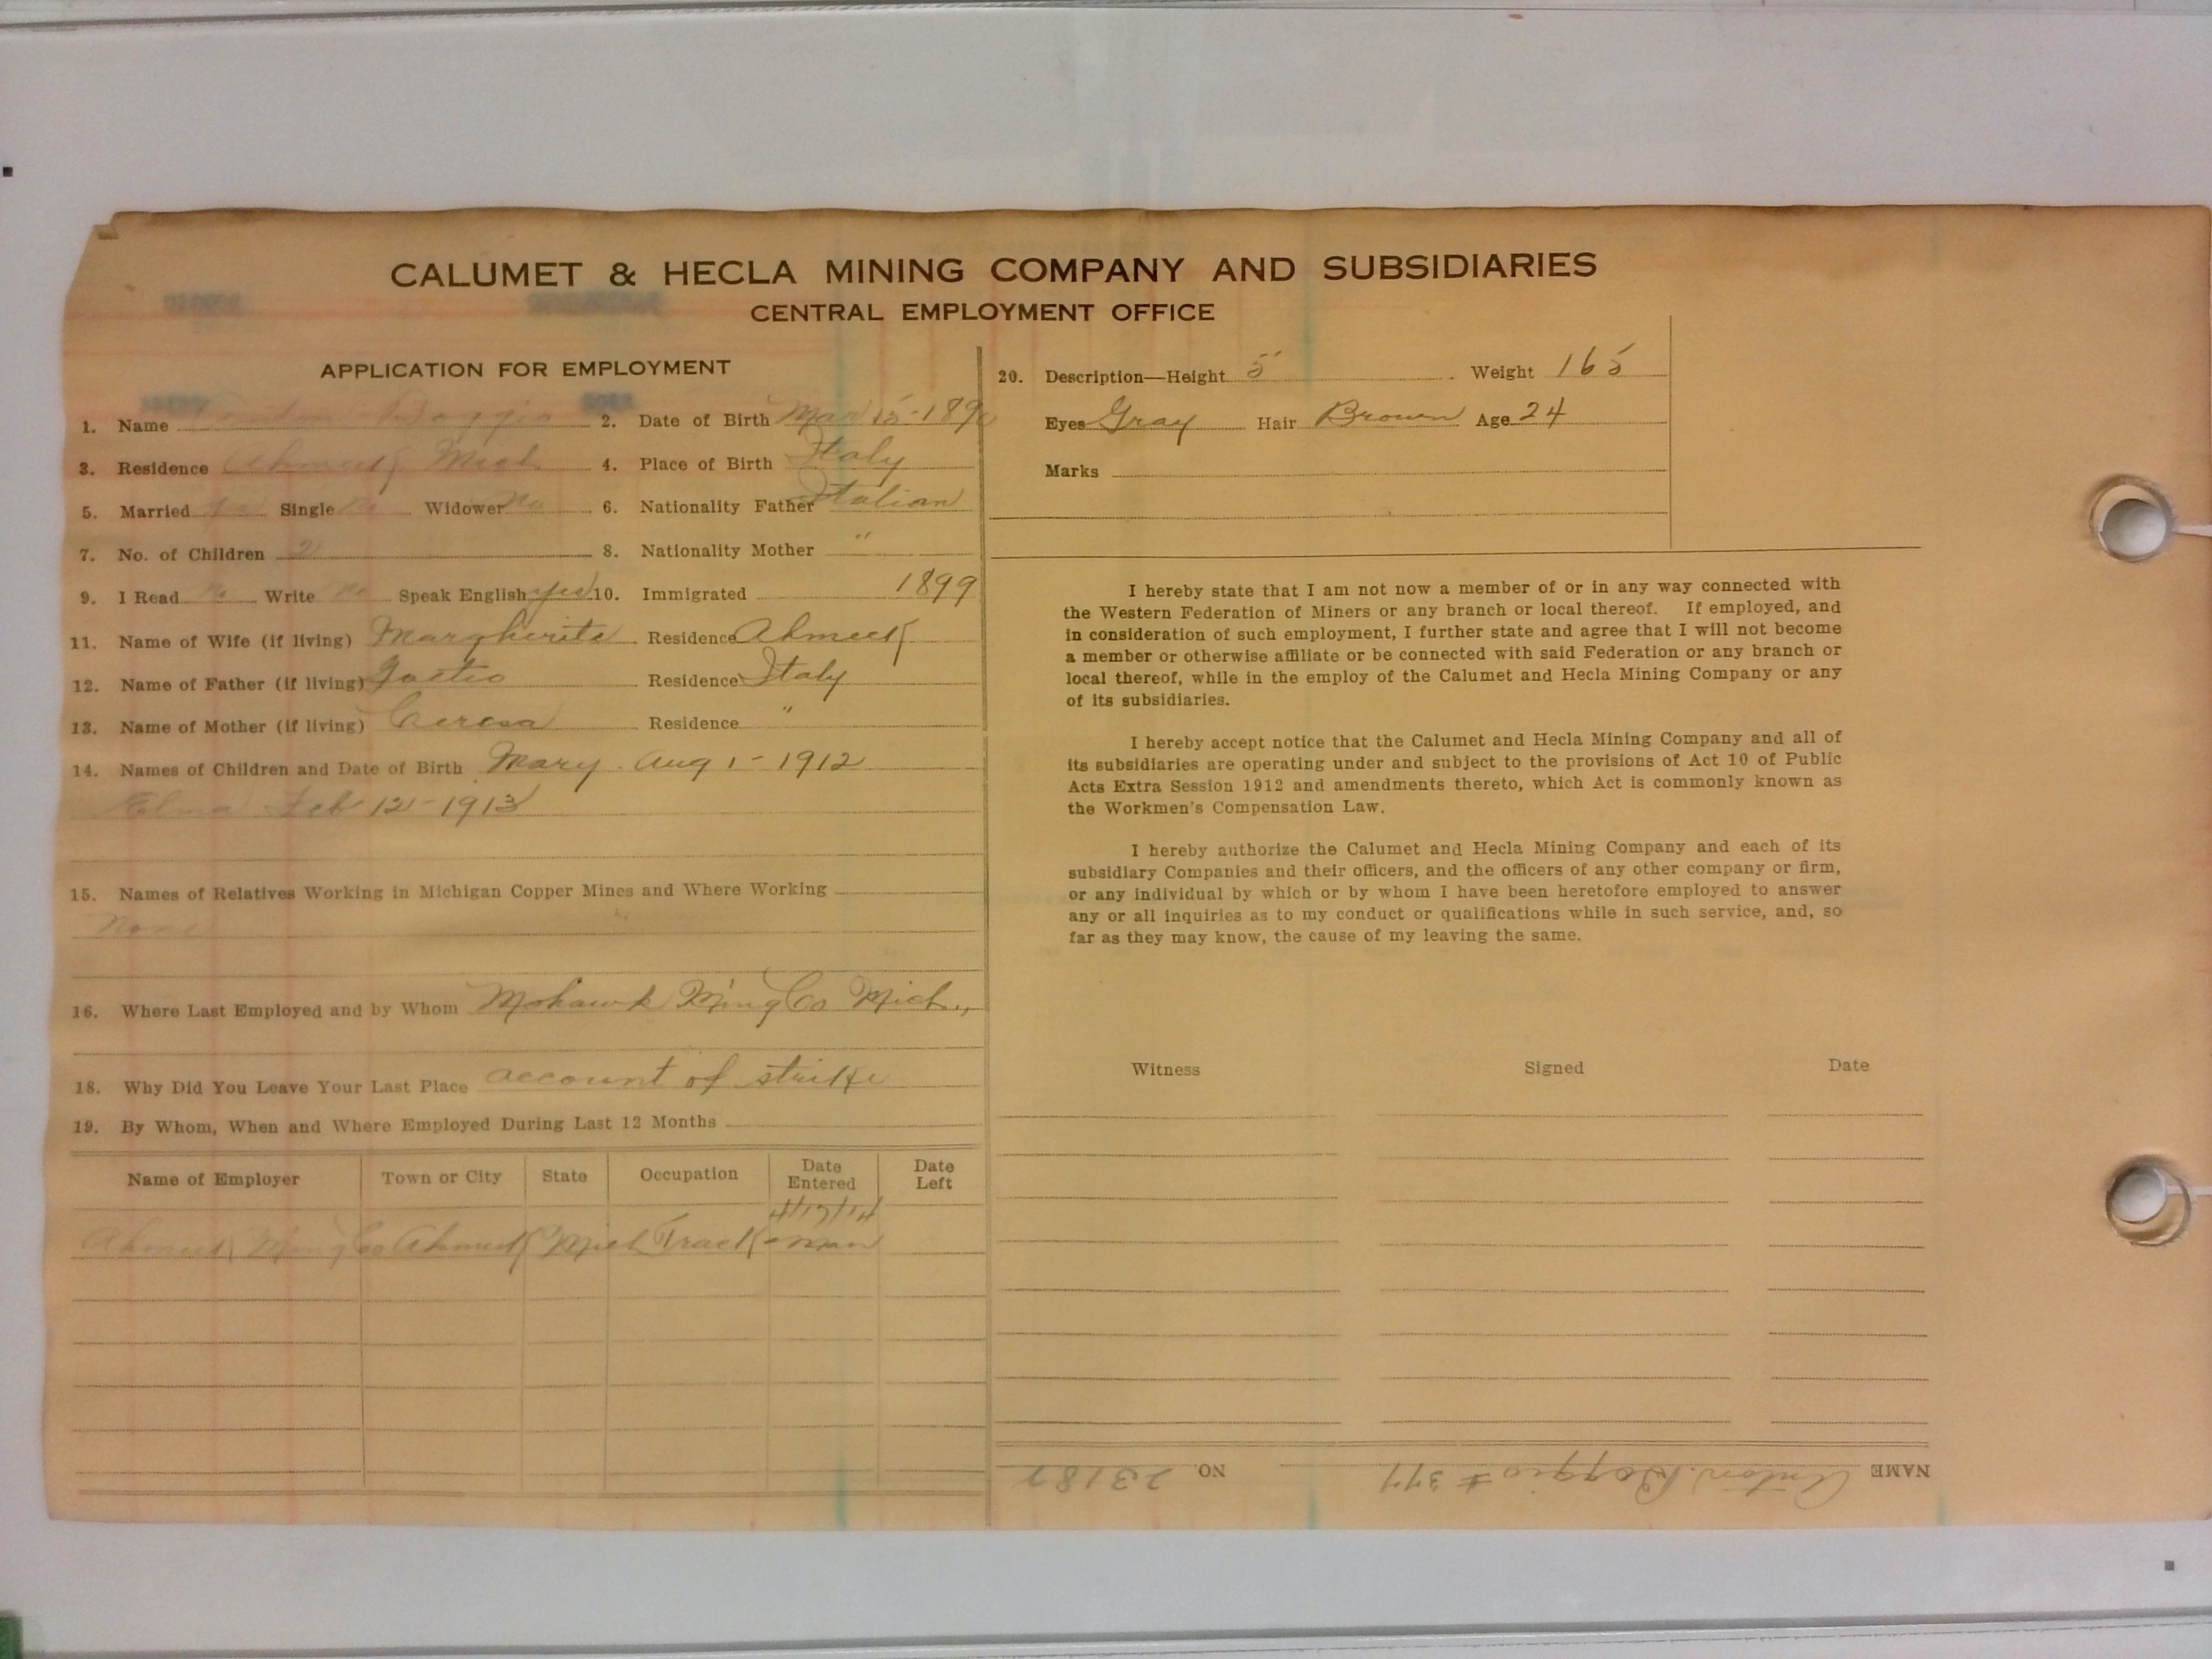 CALUMET & HECLA MINING COMPANY AND SUBSIDIARIES
CENTRAL EMPLOYMENT OFFICE
APPLICATION FOR EMPLOYMENT
1. Name Boggio 2. Date of Birth Mar 15-189
3. Residence Ahmeek Mich 4. Place of Birth Italy
5. Married yes Single no Widower no 6. Nationality Father Italian
7. No. of Children 2 8. Nationality Mother "
9. I Read no Write no Speak English yes 10. Immigrated 1899
11. Name of Wife (if living) Margherite Residence Ahmeek
12. Name of Father (if living) Residence Italy
13. Name of Mother (if living) Residence "
14. Names of Children and Date of Birth Mary. Aug 1-1912
Elma Feb 12-1913
15. Names of Relatives Working in Michigan Copper Mines and Where Working
None
16. Where Last Employed and by Whom Mohawk M'ing Co Mich.,
18. Why Did You Leave Your Last Place account of strike
19. By Whom, When and Where Employed During Last 12 Months
Name of Employer Town or City State Occupation Date Entered Date Left
4/17/14
Ahmeek M'ing Co Ahmeek Mich Track-man
20. Description—Height 5' Weight 165
Eyes Gray Hair Brown Age 24
Marks
I hereby state that I am not now a member of or in any way connected with
the Western Federation of Miners or any branch or local thereof. If employed, and
in consideration of such employment, I further state and agree that I will not become
a member or otherwise affiliate or be connected with said Federation or any branch or
local thereof, while in the employ of the Calumet and Hecla Mining Company or any
of its subsidiaries.
I hereby accept notice that the Calumet and Hecla Mining Company and all of
its subsidiaries are operating under and subject to the provisions of Act 10 of Public
Acts Extra Session 1912 and amendments thereto, which Act is commonly known as
the Workmen's Compensation Law.
I hereby authorize the Calumet and Hecla Mining Company and each of its
subsidiary Companies and their officers, and the officers of any other company or firm,
or any individual by which or by whom I have been heretofore employed to answer
any or all inquiries as to my conduct or qualifications while in such service, and, so
far as they may know, the cause of my leaving the same.
Witness Signed Date
NAME Anton Boggio # 377 NO. 23187